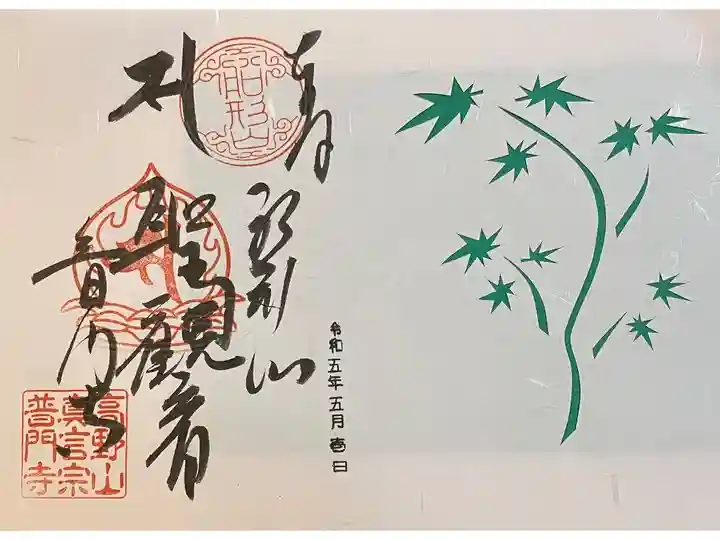 令和五年五月壱日
船形山
聖觀音
普門寺
船形山
高野山
真言宗
普門寺